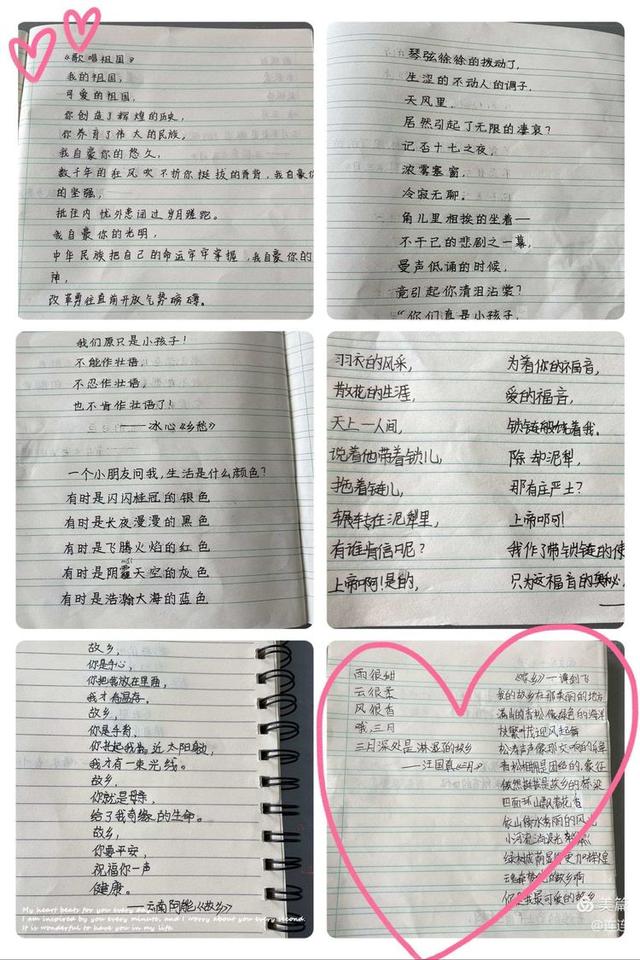 《歌唱祖国》
我的祖国，
可爱的祖国，
你创造了辉煌的历史，
你养育了伟大的民族，
我自豪你的悠久，
数千年的狂风吹不折你挺拔的脊背，我自豪你
的坚强，
抵住内忧外患闯过岁月蹉跎。
我自豪你的光明，
中华民族把自己的命运牢牢掌握，我自豪你的
神，
改革勇往直前开放气势磅礴。
琴弦徐徐的拨动了，
生涩的不动人的调子，
天风里，
居然引起了无限的凄哀？
记否十七之夜，
浓雾塞窗，
冷寂无聊。
角儿里相挨的坐着—
不干己的悲剧之一幕，
曼声低诵的时候，
竟引起你清泪沾裳？
“你们真是小孩子，
我们原只是小孩子！
不能作壮语，
不忍作壮语，
也不肯作壮语了！
——冰心《乡愁》
一个小朋友问我，生活是什么颜色？
有时是闪闪桂冠的银色
有时是长夜漫漫的黑色
有时是飞腾火焰的红色
有时是阴霾天空的灰色
有时是浩瀚大海的蓝色
羽衣的风采，
散花的生涯，
天上—人间，
说着他带着锁儿，
拖着链儿，
辗转在泥犁里，
有谁肯信呢？
上帝啊！是的，
为着你的福音，
爱的福音，
锁链般绕着我。
除却泥犁，
那有庄严土？
上帝啊！
我作了带锁链的使
只为这福音的奥秘。
故乡，
你是手心，
你把我放在里面，
我才有温存。
故乡，
你是手背，
你托起我靠近太阳，
我才有一束光线。
故乡，
你就是母亲，
给了我奇缘的生命。
故乡，
你要平安，
祝福你一声
健康。
——云南阿能《故乡》
My heart beats for you every day.
I am inspired by you every minute, and I worry about you every second.
It is wonderful to have you in my life.
雨很细
云很柔
风很香
哦，三月
三月深处是淋湿的故乡
——汪国真《三月》
《家乡》——谭剑飞
我的故乡在那美丽的地方
满山的青松像绿色的海洋
枝繁叶茂迎风起舞
四面环山飘着花香
依山傍水秀丽的风
你是我最可爱的故乡
美篇